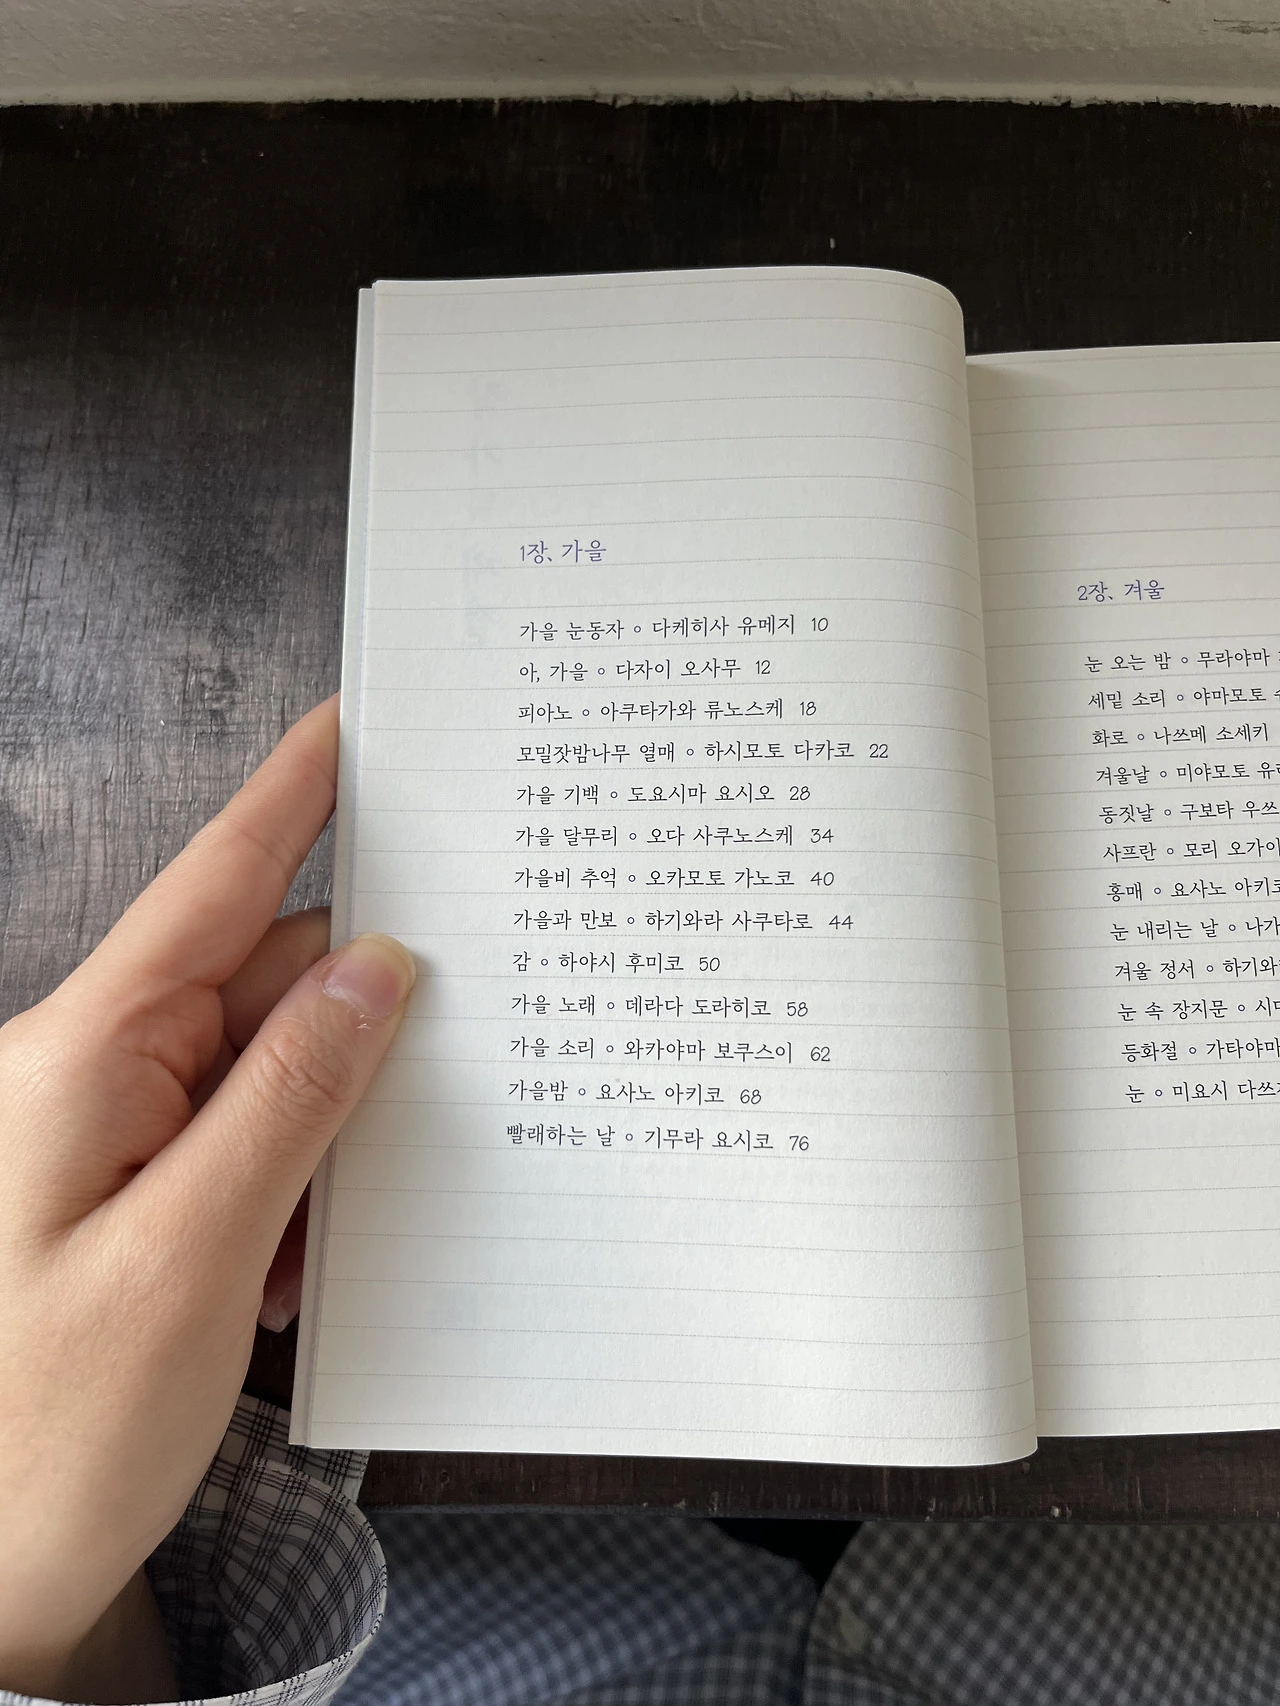 1장、가을
가을 눈동자 ∘ 다케히사 유메지 10
아, 가을 ∘ 다자이 오사무 12
피아노 ∘ 아쿠타가와 류노스케 18
모밀잣밤나무 열매 ∘ 하시모토 다카코 22
가을 기백 ∘ 도요시마 요시오 28
가을 달무리 ∘ 오다 사쿠노스케 34
가을비 추억 ∘ 오카모토 가노코 40
가을과 만보 ∘ 하기와라 사쿠타로 44
감 ∘ 하야시 후미코 50
가을 노래 ∘ 데라다 도라히코 58
가을 소리 ∘ 와카야마 보쿠스이 62
가을밤 ∘ 요사노 아키코 68
빨래하는 날 ∘ 기무라 요시코 76
2장、겨울
눈 오는 밤 ∘ 무라야마
세밑 소리 ∘ 야마모토
화로 ∘ 나쓰메 소세키
겨울날 ∘ 미야모토
동짓날 ∘ 구보타
사프란 ∘ 모리 오가이
홍매 ∘ 요사노 아키코
눈 내리는 날 ∘
겨울 정서 ∘
눈 속 장지문 ∘
등화절 ∘ 가타야마
눈 ∘ 미요시